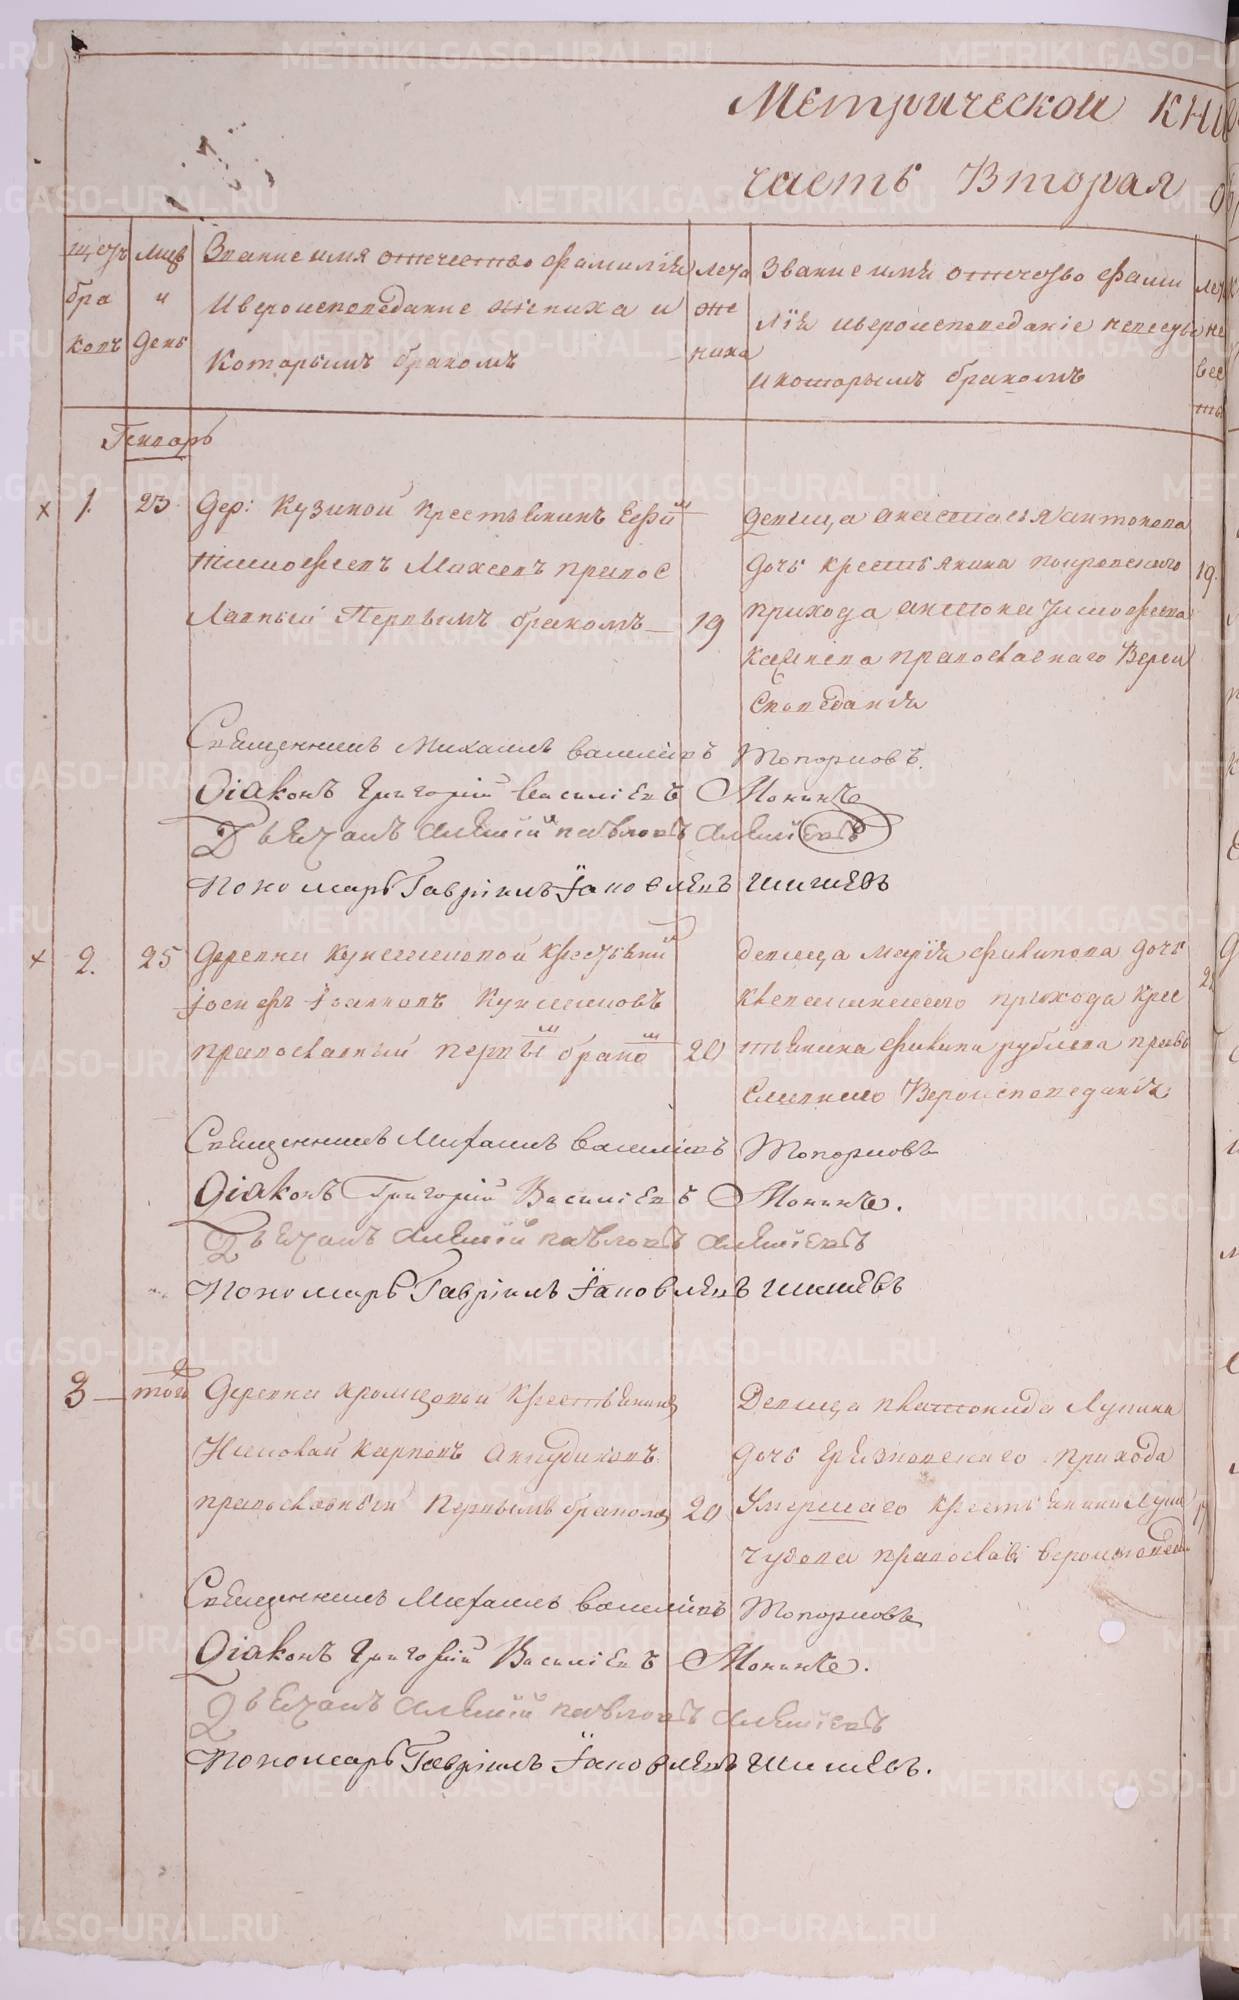 Метрической кни
часть Вторая о
щетъ
бра
ковъ
мцъ
и
день
Звание имя отечество фамилія
И вероисповедание жениха и
Которымъ бракомъ
лета
же
ниха
Звание имя отечество фами
лія и вероисповеданіе невесты
и которымъ бракомъ
лет
не
вес
ты
Генварь
1. 23 дер: Кузиной крестьянинъ Ефи м
Тимофеевъ Махсевъ правос
лавный Первымъ бракомъ 19
девица Анастасья Антонова
дочь крестьянина Покровского
прихода Антона Тимофеева
православнаго Верои
споведанія
19.
Священникъ Михаилъ Васильевъ Топорковъ.
Діаконъ Григорій Васильевъ Монинъ
Дьячокъ Алексій Павловъ Алексіевъ
Пономарь Гавріилъ Іаковлевъ Шишевъ
2. 25 Деревни крестьянин
Іосифъ Іоанновъ
православный первы м брако м 20
девица Марія Филипова дочь
прихода крес
тьянина Филипа Рублева право
славнаго Вероисповеданія
Священникъ Михаилъ Васильевъ Топорковъ
Діаконъ Григорій Васильевъ Монинъ.
Дьячокъ Алексій Павловъ Алексіевъ
Пономарь Гавріилъ Іаковлевъ Шишевъ
3 того Деревни Хромцовой крестьянинъ
Николай Карповъ Анкудиновъ
православный Первымъ бракомъ 20
Девица Платонида Лупина
дочь прихода
Умершаго крестьянина Лупа
Чудова православ: вероисповед
Священникъ Михаилъ Васильевъ Топорковъ
Діаконъ Григорій Васильевъ Монинъ.
Дьячокъ Алексій Павловъ Алексіевъ
Пономарь Гавріилъ Іаковлевъ Шишевъ.
METRIKI.GASO-URAL.RU